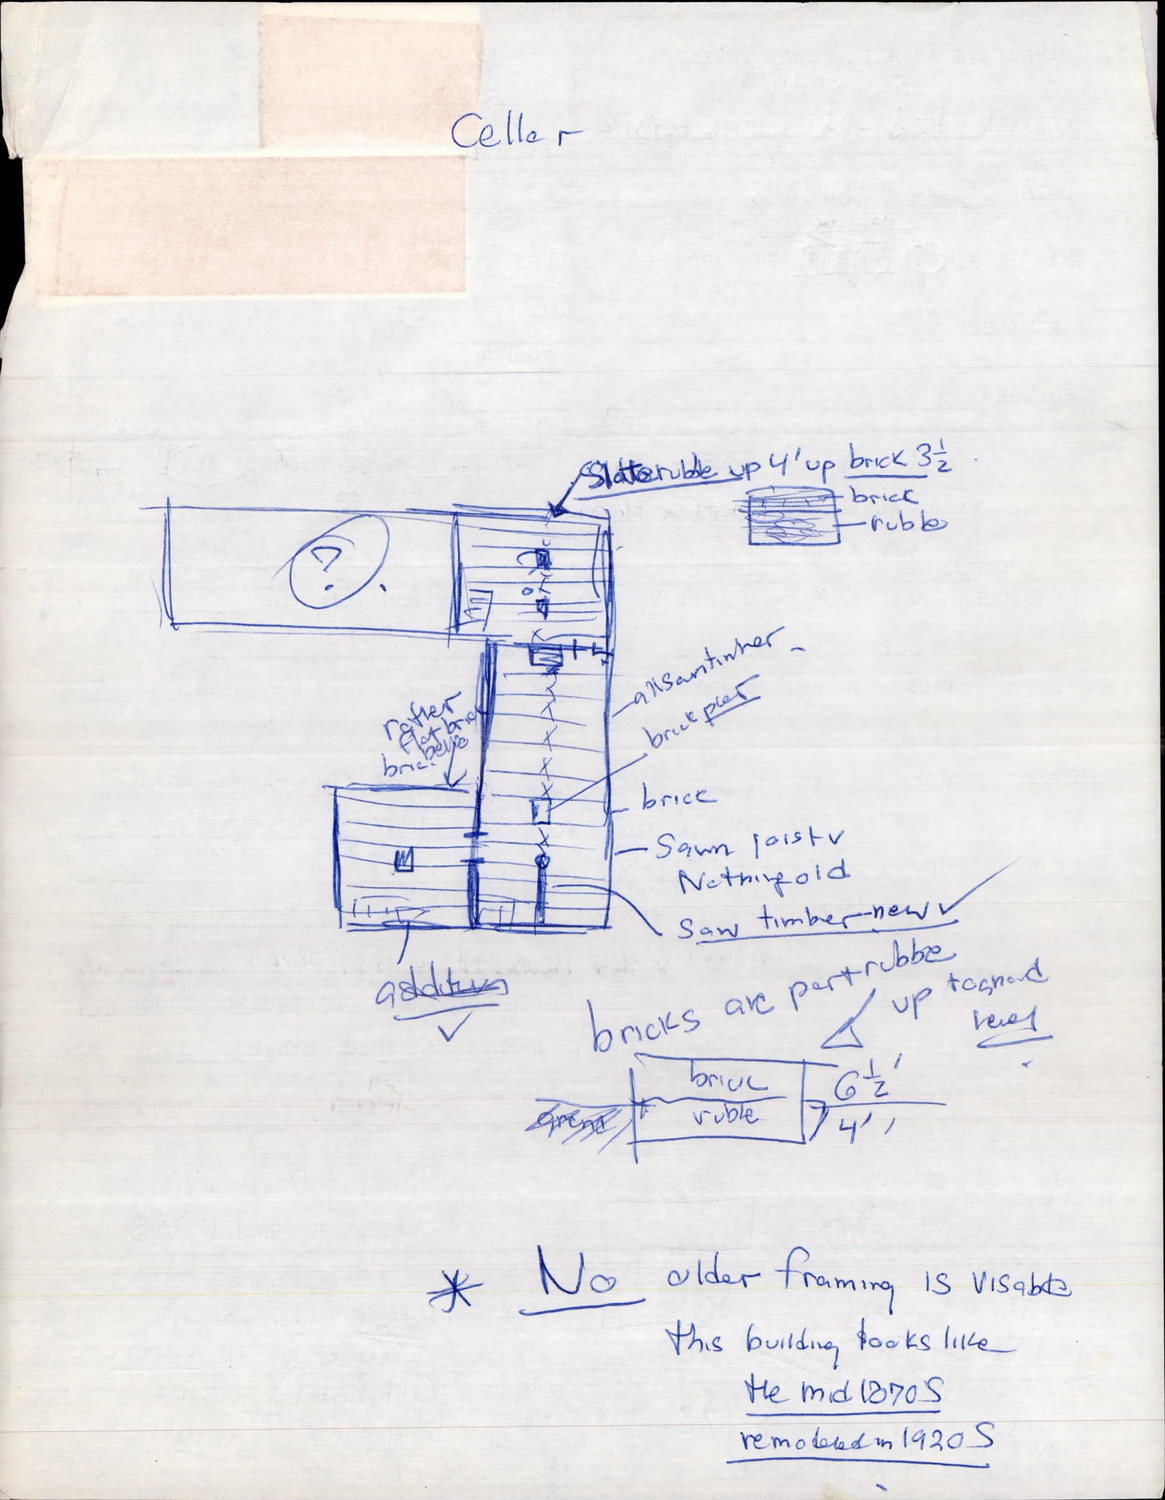 Cellar
Slate ruble up 4' up brick 3 1/2
brick
ruble
?
all sawn timber
brick pier
rafter
flat brick
below
brick
brick
Sawn joist
Nothing old
Saw timber - new
addition
bricks are part rubbe
up to ground
level
brick
6 1/2'
ruble
4'
* No older framing is visable
this building looks like
the mid 1870S
remodeled in 1920S